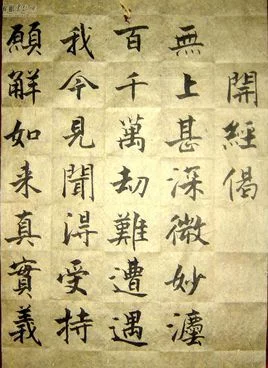 開經偈
無上甚深微妙灋
百千萬劫難遭遇
我今見聞淂受持
願解如来真實義